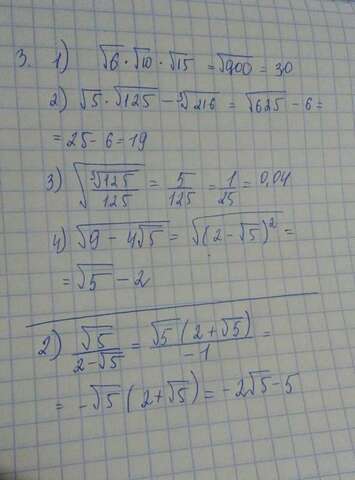 3. 1) √6 · √10 · √15 = √900 = 30
2) √5 · √125 - ³√216 = √625 - 6 =
= 25 - 6 = 19
3) √(³√125 / 125) = 5/125 = 1/25 = 0,04
4) √(9 - 4√5) = √((2 - √5)²) =
= √5 - 2
2) √5 / (2 - √5) = √5 (2 + √5) / -1 =
= -√5 (2 + √5) = -2√5 - 5